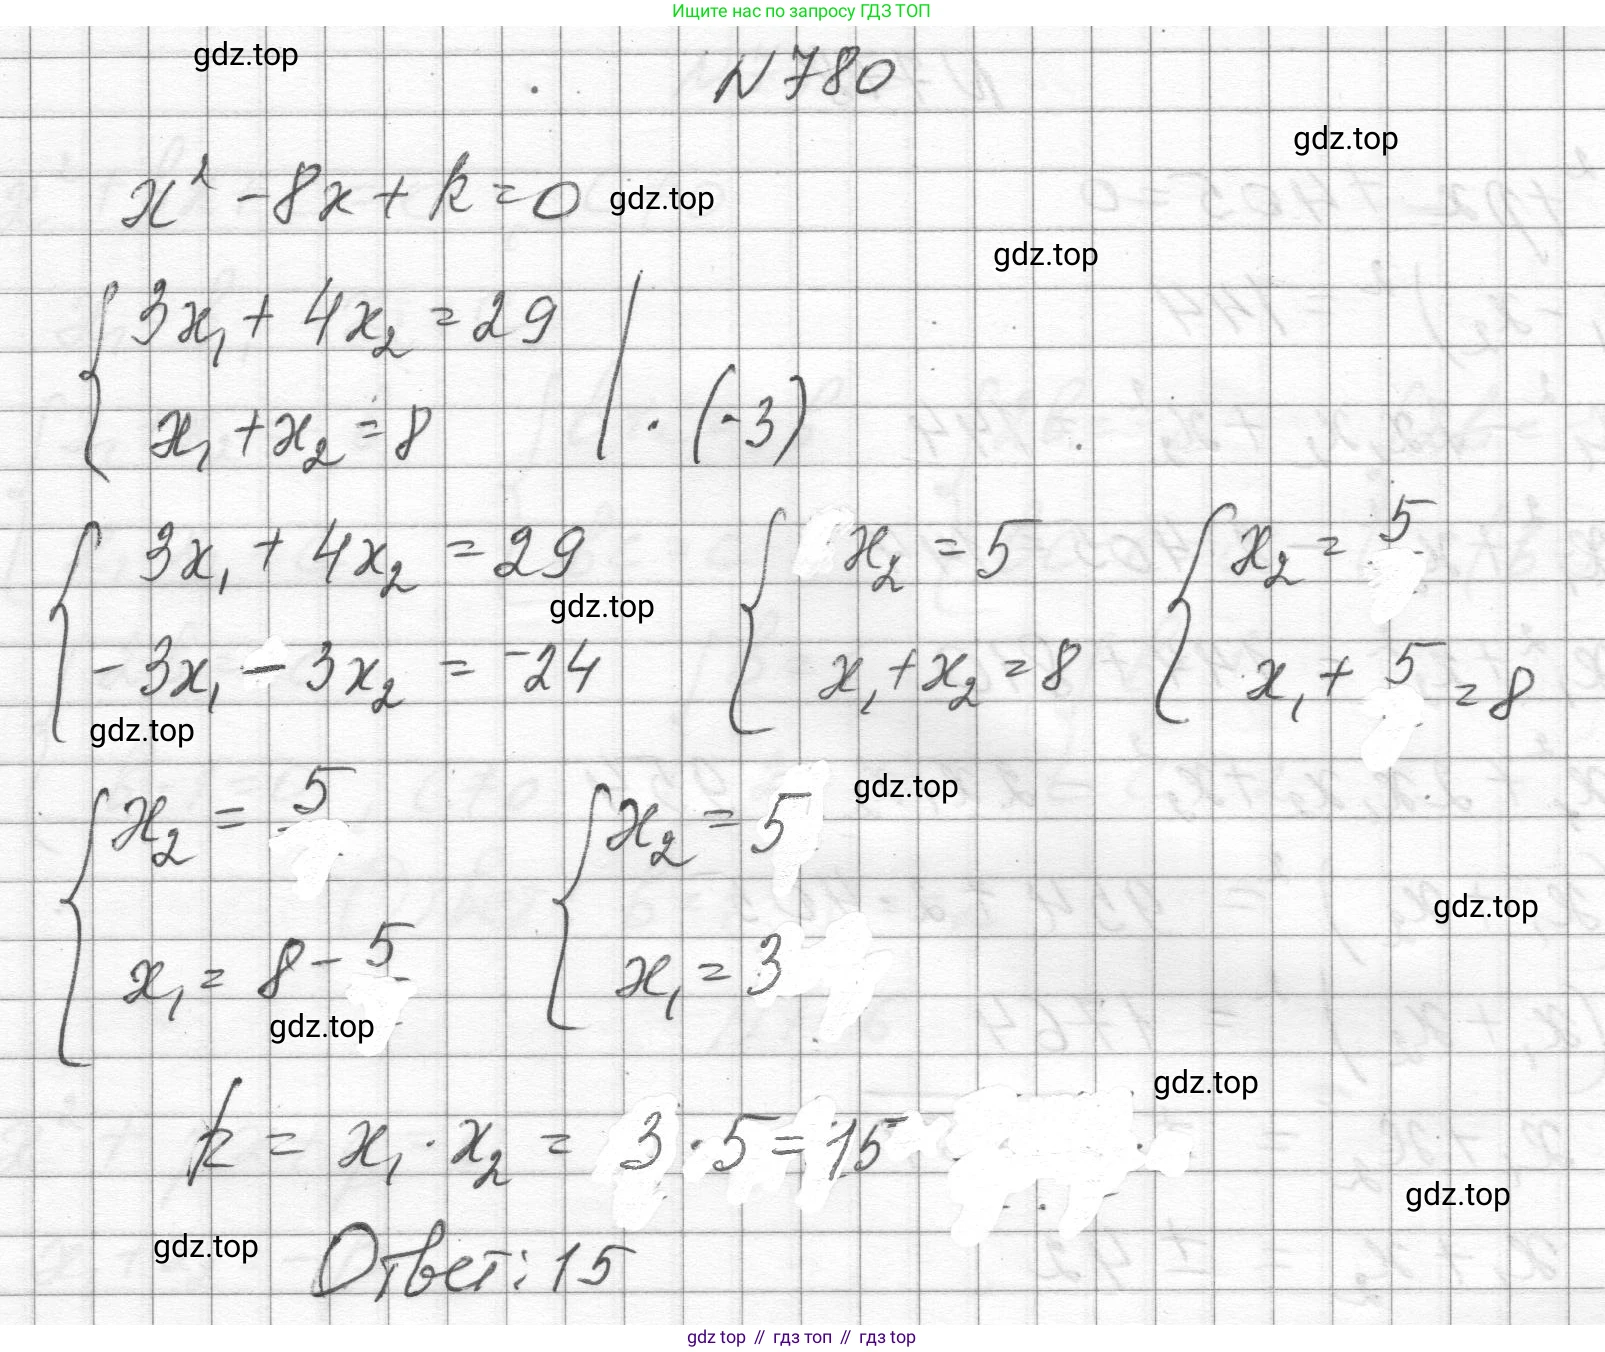 Ищите нас по запросу ГДЗ ТОП
gdz.top
N 780
gdz.top
x² - 8x + k = 0 gdz.top
gdz.top
{ 3x₁ + 4x₂ = 29 |
{ x₁ + x₂ = 8 | · (-3)
{ 3x₁ + 4x₂ = 29 { x₂ = 5 { x₂ = 5
gdz.top
{ -3x₁ - 3x₂ = -24 { x₁ + x₂ = 8 { x₁ + 5 = 8
gdz.top
gdz.top
{ x₂ = 5 { x₂ = 5
gdz.top
{ x₁ = 8 - 5 { x₁ = 3
gdz.top
gdz.top
k = x₁ · x₂ = 3 · 5 = 15
gdz.top
gdz.top
Ответ: 15
gdz top // гдз топ // гдз top